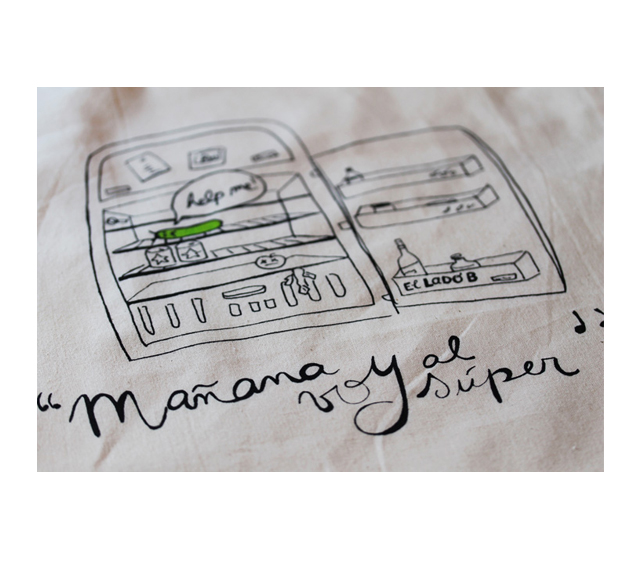 help me!
EL LADO B
“Mañana voy al súper”